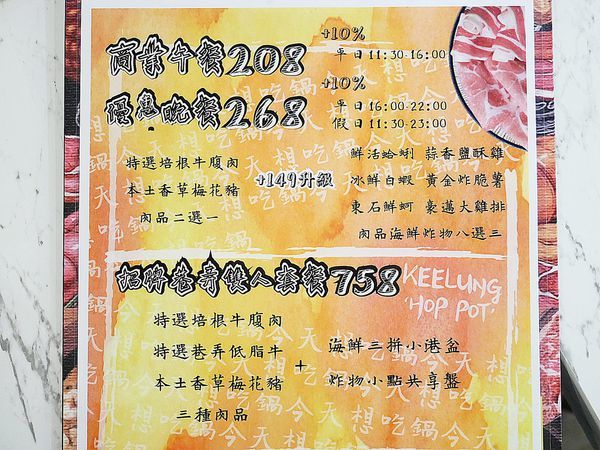 商業午餐208 +10%
平日11:30-16:00
優惠晚餐268 +10%
平日16:00-22:00
假日11:30-23:00
特選培根牛腹肉
本土香草梅花豬
肉品二選一
+149升級
鮮活蛤蜊 蒜香鹽酥雞
冰鮮白蝦 黃金炸脆薯
東石鮮蚵 豪邁大雞排
肉品海鮮炸物八選三
招牌巷弄雙人套餐758
KEELUNG
'HOP POT'
特選培根牛腹肉
特選巷弄低脂牛
本土香草梅花豬
三種肉品
+
海鮮三拼小港盆
炸物小點共享盤